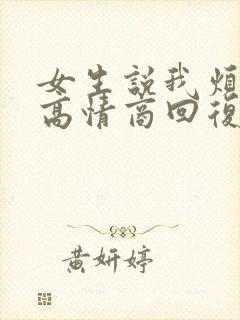 女生說我煩
高情商回復
黃妍婷